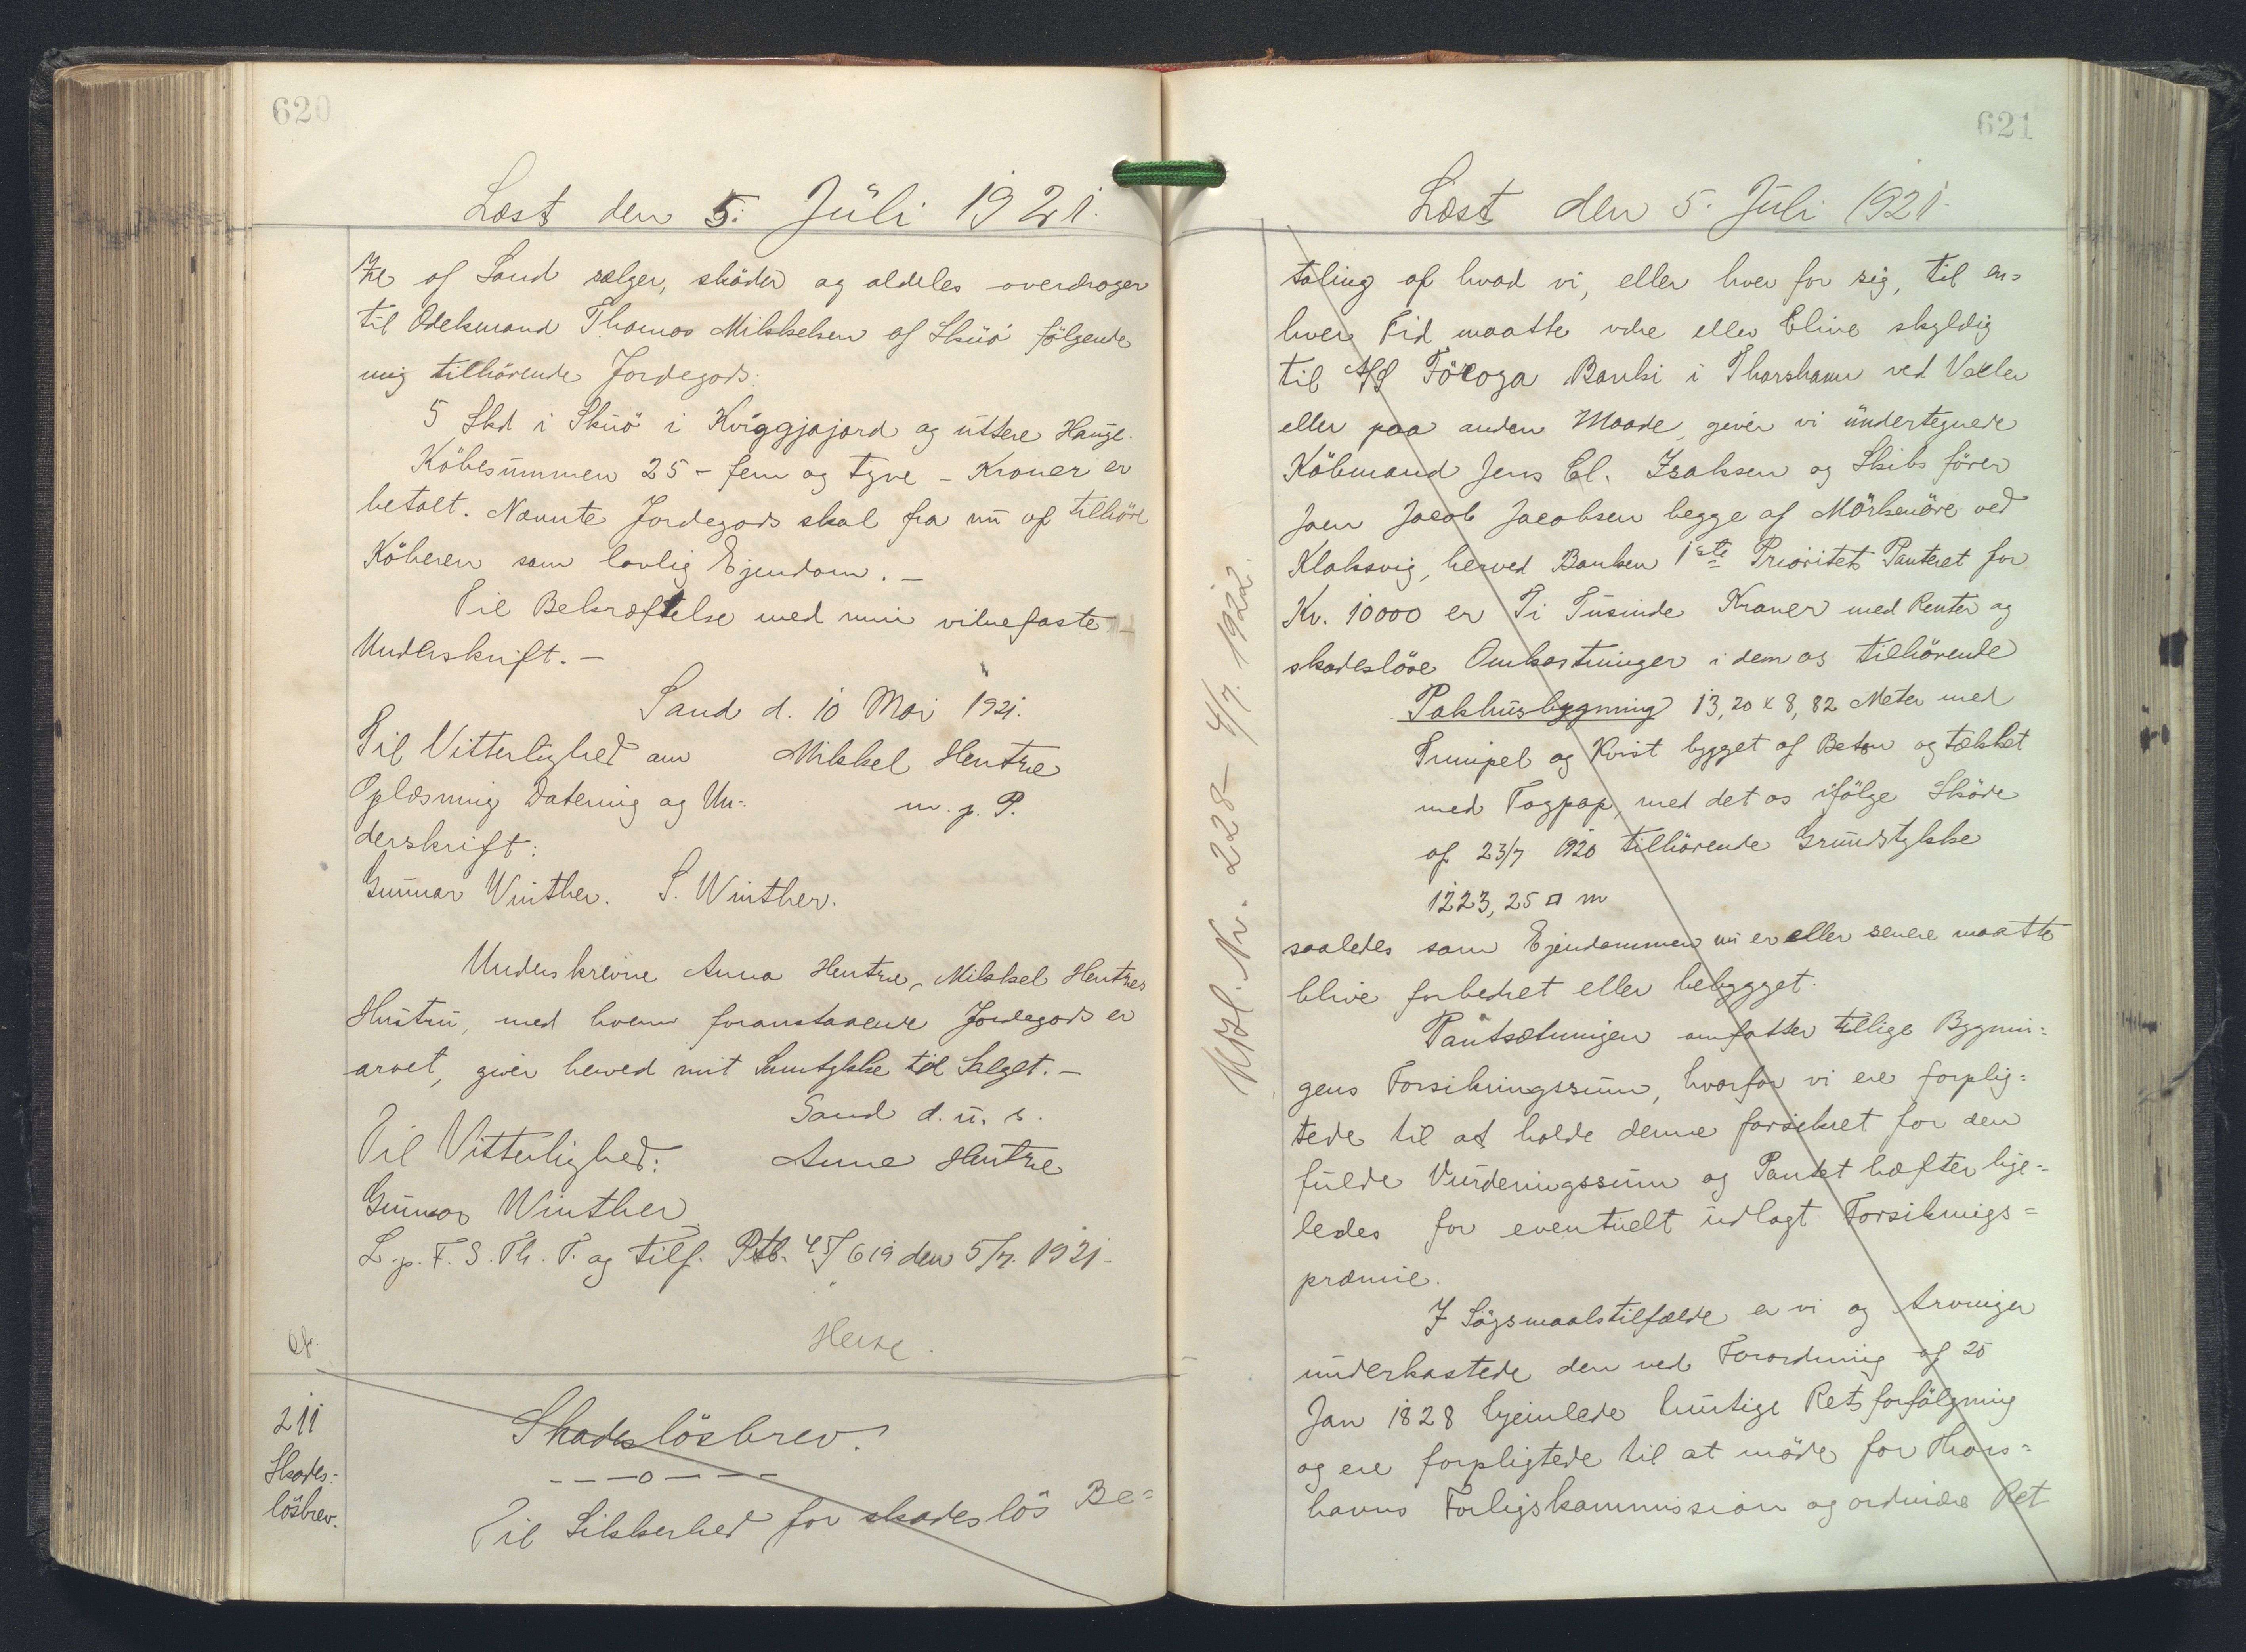 620
Læst den 5. Juli 1921.
ze af Sand sælger, skøder og aldeles overdrager
til Odelsmand Thomas Mikkelsen af Skuö følgende
mig tilhörende Jordegods:
5 Skd i Skuö i Kviggjajord og uttere Hauge.
Köbesummen 25 - fem og tyve - Kroner er
betalt. Nævnte Jordegods skal fra nu af tilhöre
Köberen som lovlig Ejendom. -
Til Bekræftelse med min vidnefaste
Underskrift. -
Sand d. 10 Mai 1921.
Til Vitterlighed om Mikkel Hentze
Oplæsning Datering og Un- m. f. P.
derskrift:
Gunnar Winther. S. Winther.
Underskrevne Anna Hentze, Mikkel Hentzes
Hustru, med hvem foranstaaende Jordegods er
arvet, giver herved mit Samtykke til Salget. -
Sand d. u. s.
Til Vitterlighed: Anna Hentze
Gunnar Winther
L. p. F. S. Th. T. og tilf. Ptb. 45/619 den 5/7. 1921.
cf.
211
Skades=
lösbrev.
Skadeslösbrev.
- - - o - - -
Til Sikkerhed for skadeslös Be=
621
Læst den 5. Juli 1921.
taling af hvad vi, eller hver for sig, til en=
hver Tid maatte være eller blive skyldig
til A/S Föroya Banki i Thorshavn ved Vexler
eller paa anden Maade, giver vi undertegnede
Köbmand Jens Cl. Isaksen og Skibsförer
Joen Jacob Jacobsen begge af Mörkenöre ved
Klaksvig, herved Banken 1ste Prioritets Panteret for
Kr. 10000 er Ti Tusinde Kroner med Renter og
skadeslöse Omkostninger i dem os tilhörende
Pakhusbygning 13,20 x 8,82 Meter med
Trempel og Kvist bygget af Beton og tækket
med Tagpap, med det os ifölge Sköde
af 23/7 1920 tilhörende Grundstykke
1223,25 □ m
saaledes som Ejendommen nu er eller senere maatte
blive forbedret eller bebygget.
Pantsætningen omfatter tillige Bygnin=
gens Forsikringssum, hvorfor vi ere forplig=
tede til at holde denne forsikret for den
fulde Vurderingssum og Pantet hæfter lige=
ledes for eventuelt udlagt Forsikrings=
præmie.
I Sögsmaalstilfælde er vi og Arvinger
underkastede den ved Forordning af 25
Jan 1828 hjemlede hurtige Retsforfölgning
og ere forpligtede til at möde for Thors=
havns Forligskommission og ordinære Ret
Nr. 228 - 4/7. 1922.